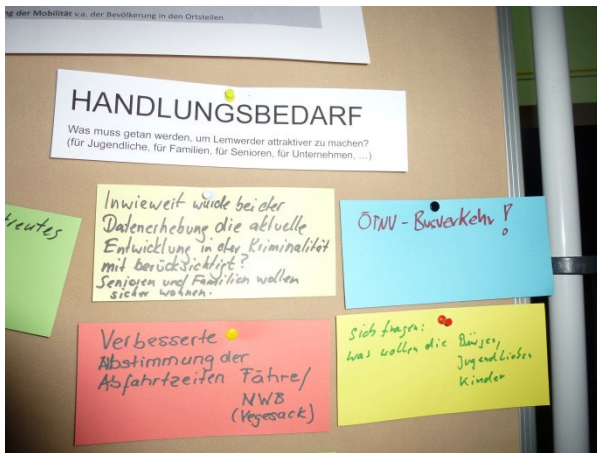 ng der Mobilität v.a. der Bevölkerung in den Ortsteilen
HANDLUNGSBEDARF
Was muss getan werden, um Lemwerder attraktiver zu machen?
(für Jugendliche, für Familien, für Senioren, für Unternehmen, ...)
reutes
Inwieweit wurde bei der
Datenerhebung die aktuelle
Entwicklung in der Kriminalität
mit berücksichtigt?
Senioren und Familien wollen
sicher wohnen.
ÖPNV - Busverkehr !
Verbesserte
Abstimmung der
Abfahrtzeiten Fähre/
NWB
(Vegesack)
Sich fragen:
was wollen die Bürger,
Jugendlichen
Kinder